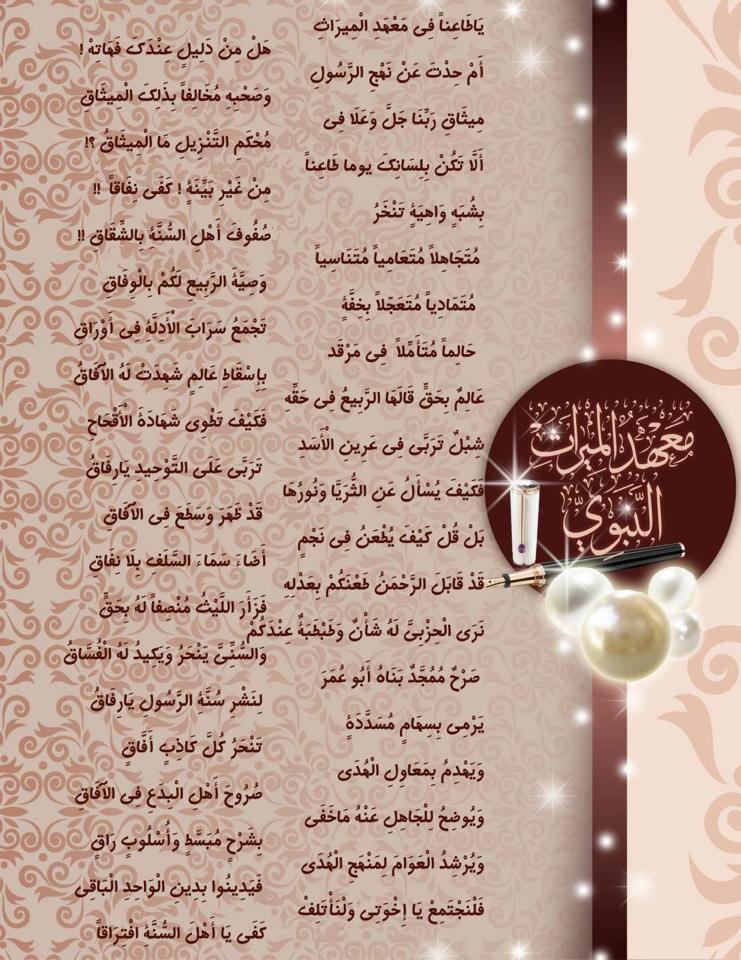 يَاطَاعِناً فِى مَعْهَد الْمِيرَاثِ
هَلْ مِنْ دَلِيلٍ عِنْدَكَ فَهَاتِهْ !
أَمْ حِدْتَ عَنْ نَهْجِ الرَّسُولِ
وَصَحْبِهِ مُخَالِفاً بِذَلِكَ الْمِيثَاقِ
مِيثَاقِ رَبِّنَا جَلَّ وَعَلَا فِى
مُحْكَمِ التَّنْزِيلِ مَا الْمِيثَاقُ ؟!
أَلَّا تَكُنْ بِلِسَانِكَ يوما طَاعِناً
مِنْ غَيْرِ بَيِّنَةٍ ! كَفَى نِفَاقاً !!
بِشُبَهٍ وَاهِيَةٍ تَنْخَرُ
صُفُوفَ أَهْلِ السُّنَّةِ بِالشِّقَاقِ !!
مُتَجَاهِلاً مُتَعَامِياً مُتَنَاسِياً
وَصِيَّةَ الرَّبِيعِ لَكُمْ بِالْوِفَاقِ
مُتَمَادِياً مُتَعَجِّلاً بِخِفَّةٍ
تَجْمَعُ سَرَابَ الْأَدِلَّةِ فِى أَوْرَاقِ
حَالِماً مُتَأَمِّلاً فِى مَرْقَد
بِإِسْقَاطِ عَالِمٍ شَهِدَتْ لَهُ الْآفَاقُ
عَالِمٌ بِحَقٍّ قَالَهَا الرَّبِيعُ فِى حَقِّهِ
فَكَيْفَ تَطْوِى شَهَادَةَ الْأَقْحَاحِ
شِبْلٌ تَرَبَّى فِى عَرِينِ الْأَسَدِ
تَرَبَّى عَلَى التَّوْحِيدِ يَارِفَاقُ
فَكَيْفَ يُسْأَلُ عَنِ الثُّرَيَّا وَنُورُهَا
قَدْ ظَهَرَ وَسَطَعَ فِى الْآفَاقِ
بَلْ قُلْ كَيْفَ يُطْعَنُ فِى نَجْمٍ
أَضَاءَ سَمَاءَ السَّلَفِ بِلَا نِفَاقٍ
قَدْ قَابَلَ الرَّحْمَنُ طَعْنَكُمْ بِعَدْلِهِ
فَزَأَرَ اللَّيْثُ مُنْصِفاً لَهُ بِحَقٍّ
نَرَى الْحِزْبِىَّ لَهُ شَأْنٌ وَطَبْطَبَةٌ عِنْدَكُمْ
وَالسُّنِّىَّ يَنْحَرُ وَيَكِيدُ لَهُ الْفُسَّاقُ
صَرْحٌ مُمَجَّدٌ بَنَاهُ أَبُو عُمَرَ
لِنَشْرِ سُنَّةِ الرَّسُولِ يَارِفَاقُ
يَرْمِى بِسِهَامٍ مُسَدَّدَةٍ
تَنْحَرُ كُلَّ كَاذِبٍ أَفَّاقٍ
وَيَهْدِمُ بِمَعَاوِلِ الْهُدَى
صُرُوحَ أَهْلِ الْبِدَعِ فِى الْآفَاقِ
وَيُوضِحُ لِلْجَاهِلِ عَنْهُ مَاخَفَى
بِشَرْحٍ مُبَسَّطٍ وَأُسْلُوبٍ رَاقٍ
وَيُرْشِدُ الْعَوَامَ لِمَنْهَجِ الْهُدَى
فَيَدِينُوا بِدِينِ الْوَاحِدِ الْبَاقِى
فَلْنَجْتَمِعْ يَا إِخْوَتِى وَلْنَأْتَلِفْ
كَفَى يَا أَهْلَ السُّنَّةِ افْتِرَاقاً
معهد الميراث
النبوي